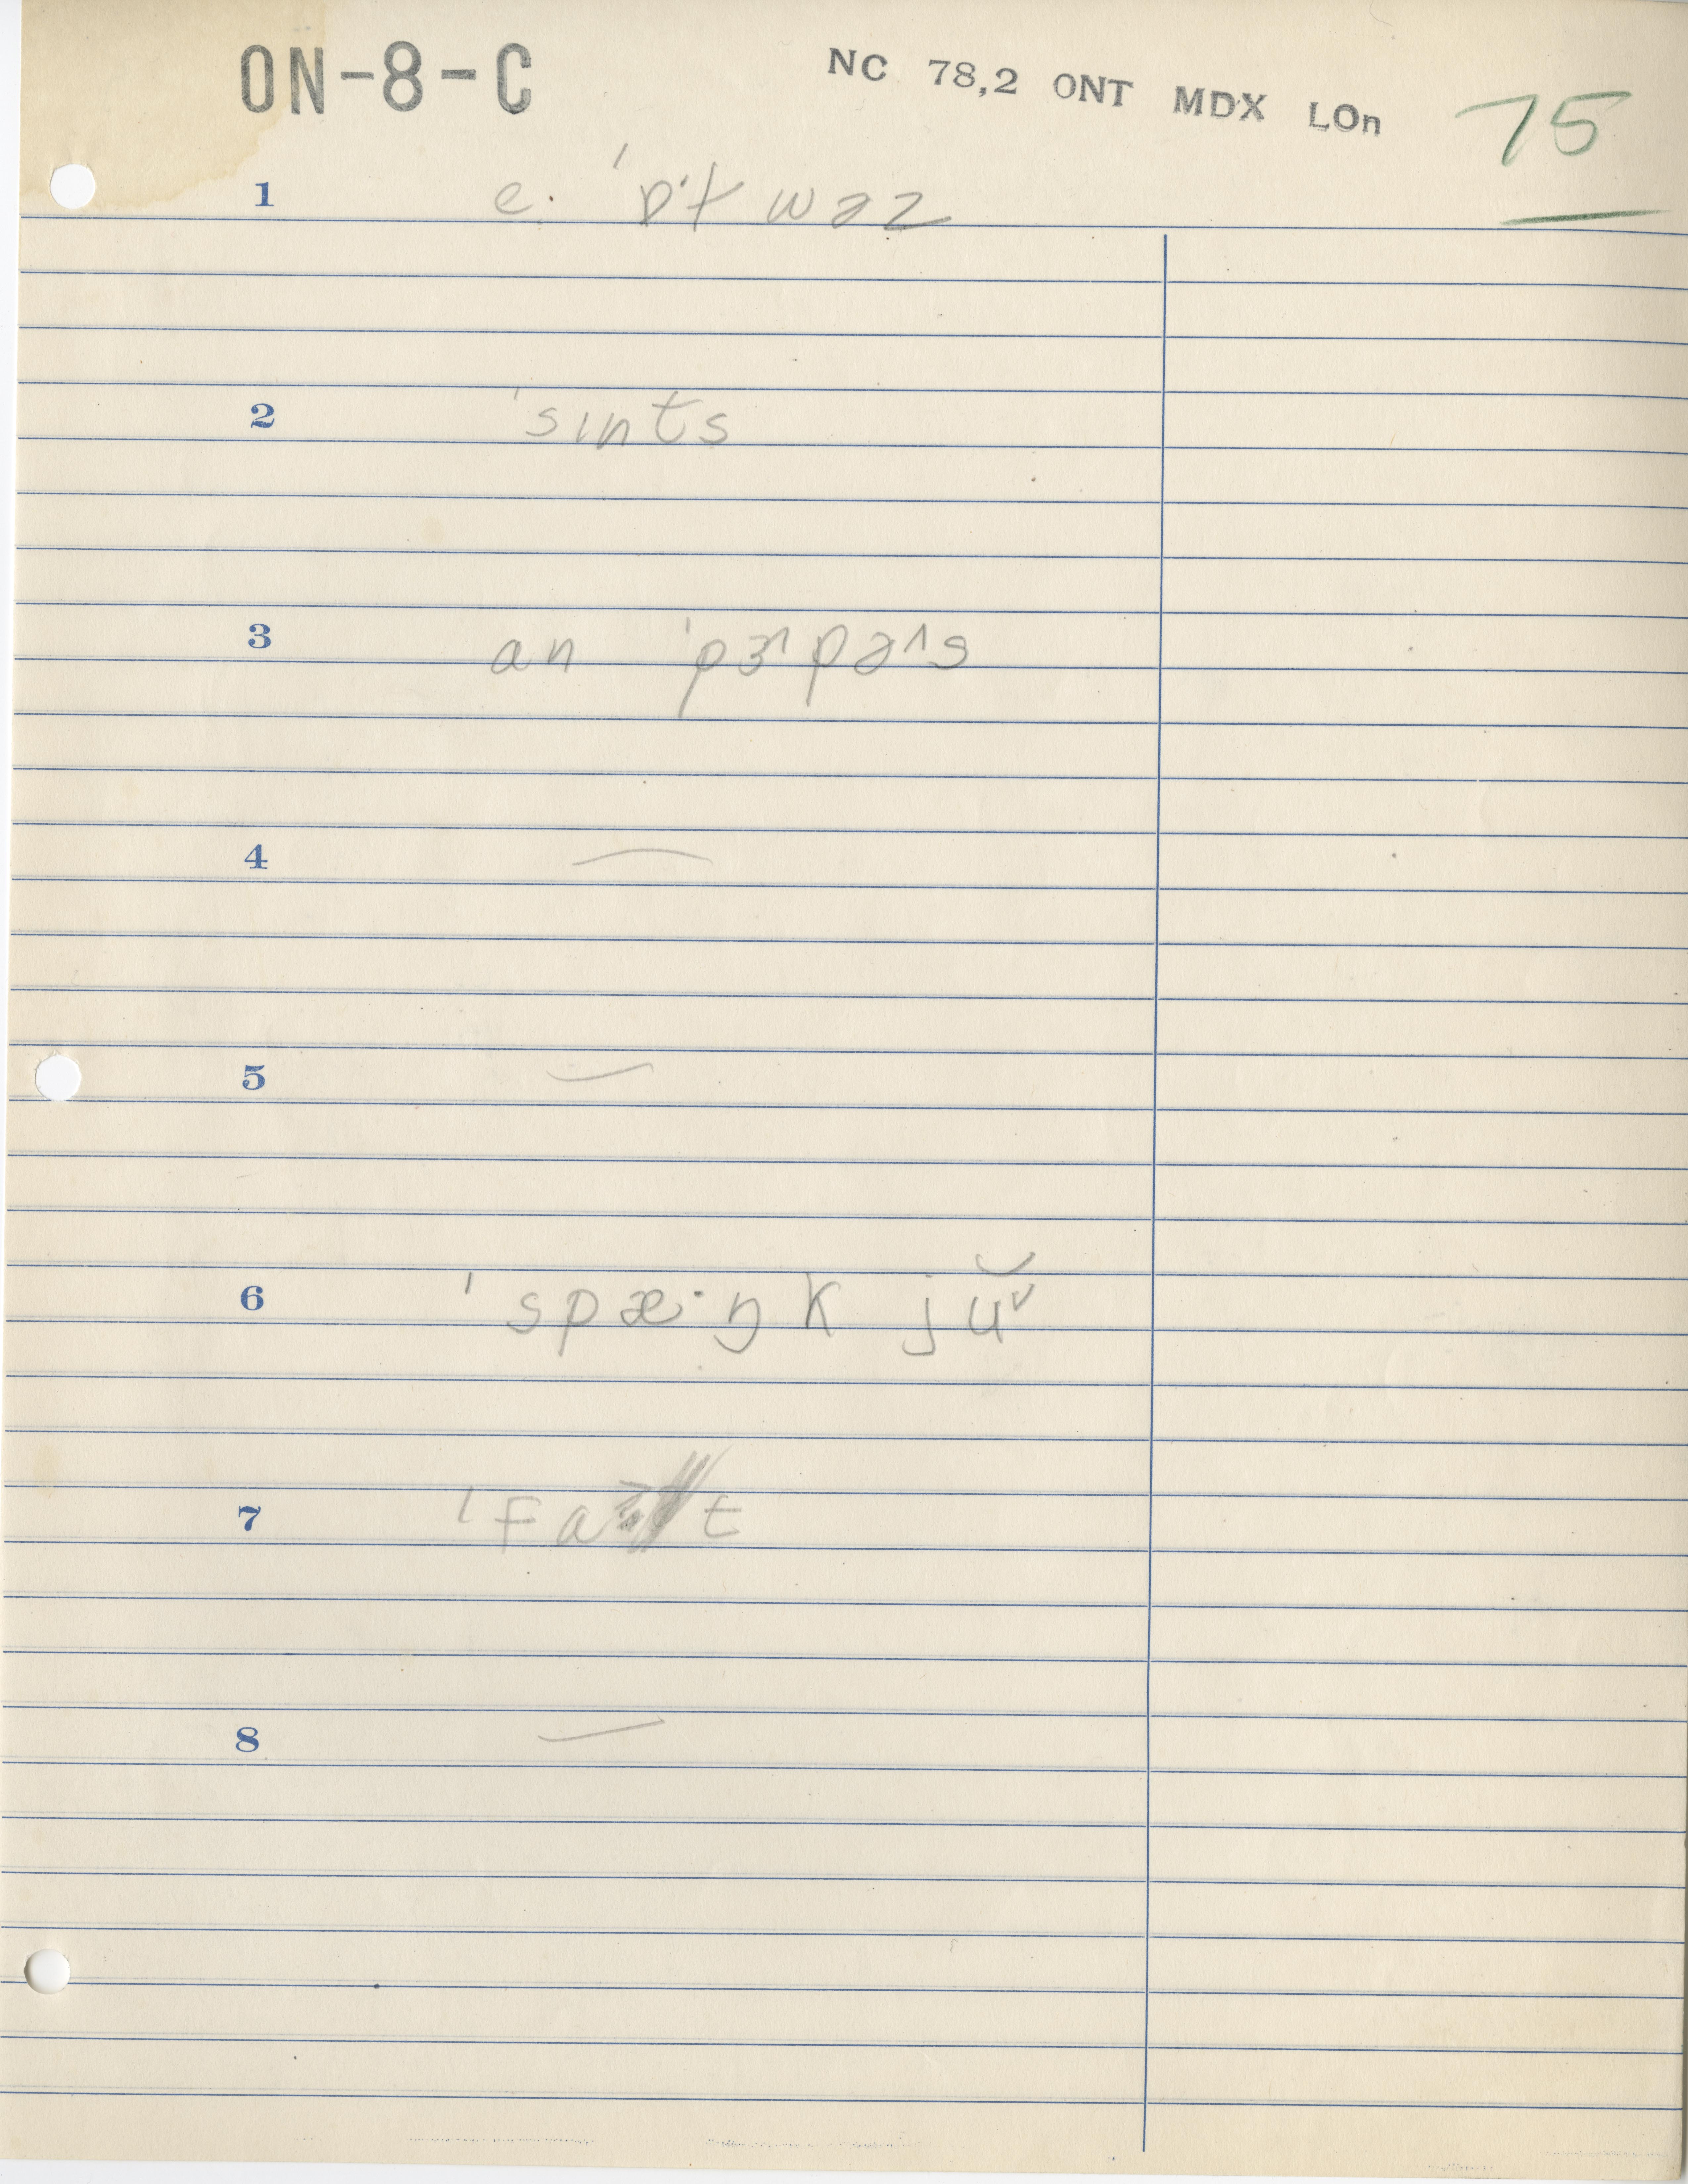 ON-8-C
NC 78,2 ONT MDX LOn 75
1 e. ˈɒ·t wəz
2 ˈsɪnts
3 an ˈpɝpəˈs
4 —
5 —
6 ˈspæ·ŋk jŭ
7 ˈfat
8 —